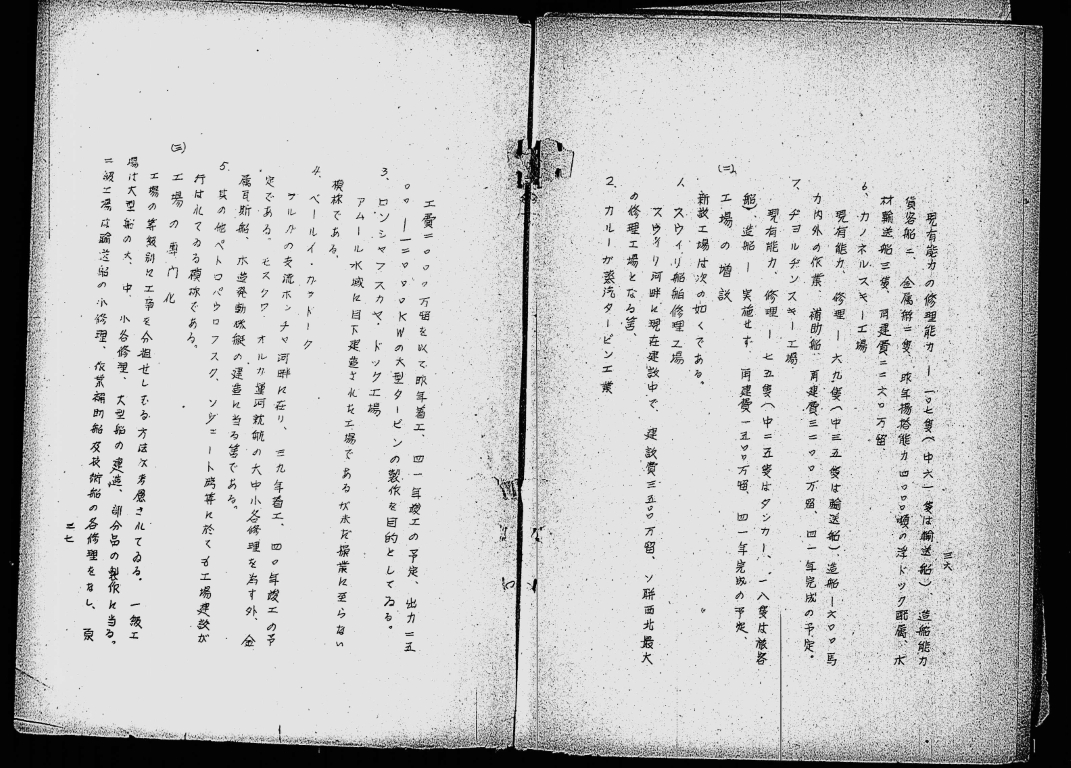 現有能力の修理能力―一〇七隻(中六一隻は輸送船) 造船能力
貨客船二、金属艀二隻、昨年揚搭能力四〇〇〇噸の浮ドック配属、木
材輸送船三隻、再建費二二六〇万留、
6. カノネルスキー工場
現有能力、修理―六九隻(中三五隻は輸送船)造船―六〇〇馬
力内外の作業、補助船 再建費三二〇〇万留、四一年完成の予定。
7. ヂヨルヂンスキー工場
現有能力、修理―七五隻(中二五隻はタンカー、一八隻は旅客
船)造船―実施せず 再建費一五〇〇万留、四一年完成の予定、
(二) 工場の増設
新設工場は次の如くである。
1. スウィリ船舶修理工場
スウリリ河畔に現在建設中で、建設費三五〇〇万留、ソ聯西北最大
の修理工場となる筈、
2. カルーガ蒸汽タービン工業
三六
工費二〇〇〇万留を以て昨年着工、四一年竣工の予定、出力二五
〇〇―一二〇〇〇KWの大型タービンの製作を目的としてゐる。
3. ロンシャフスカヤ、ドック工場
アムール水域に目下建造された工場であるが未だ操業に至らない
模様である。
4. ベールイ・カットーク
ヲルガの支流ホンチャ河畔に在り、三九年着工、四〇年竣工の予
定である。モスクワ オルガ運河就航の大中小各修理を為す外、金
属瓦斯船、木造発動機艇の建造に当る筈である。
5. 其の他ペトロパウロフスク、ソヴェート碼等に於ても工場建設が
行はれてゐる模様である。
(三) 工場の専門化
工場の等級別に工事を分担せしむる方法又考慮されてゐる。一級工
場は大型船の大、中、小各修理、大型船の建造、部分品の製作に当る。
二級工場は輸送船の小修理、作業補助船及技術船の各修理をなし、更
三七